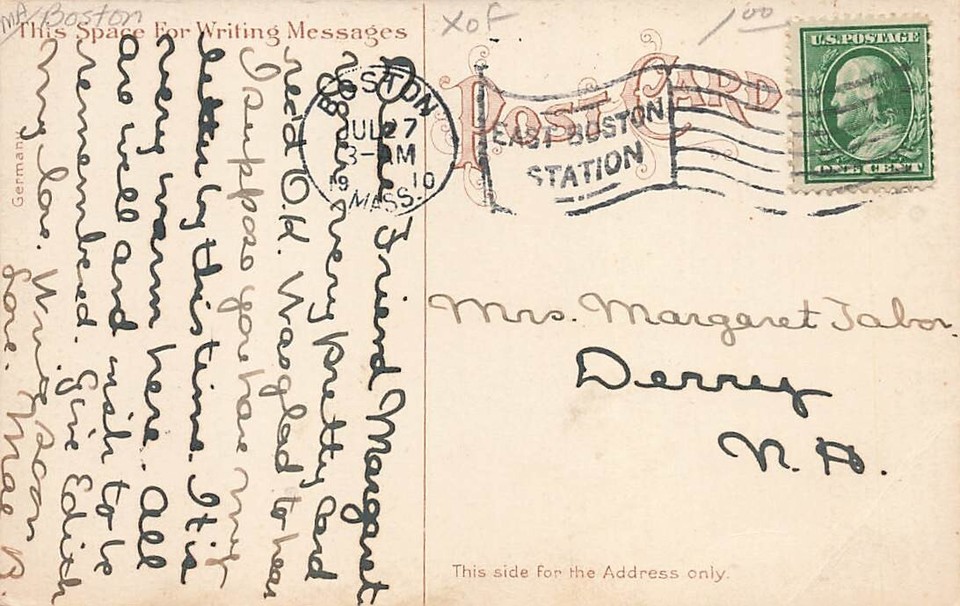 MA/Boston
XOF
1.00
This Space For Writing Messages
POST CARD
Germany
BOSTON
JUL 27
3- PM
1910
MASS.
EAST BOSTON
STATION
U.S. POSTAGE
ONE CENT
Dear Friend Margaret
Your very pretty card
rec'd O.K. Was glad to hear
I suppose you have my
letter by this time. It is
very warm here. All
are well and wish to be
remembered. Give Edith
my love. Write soon
Love. Mae B.
Mrs. Margaret Tabor.
Derry
N. H.
This side for the Address only.